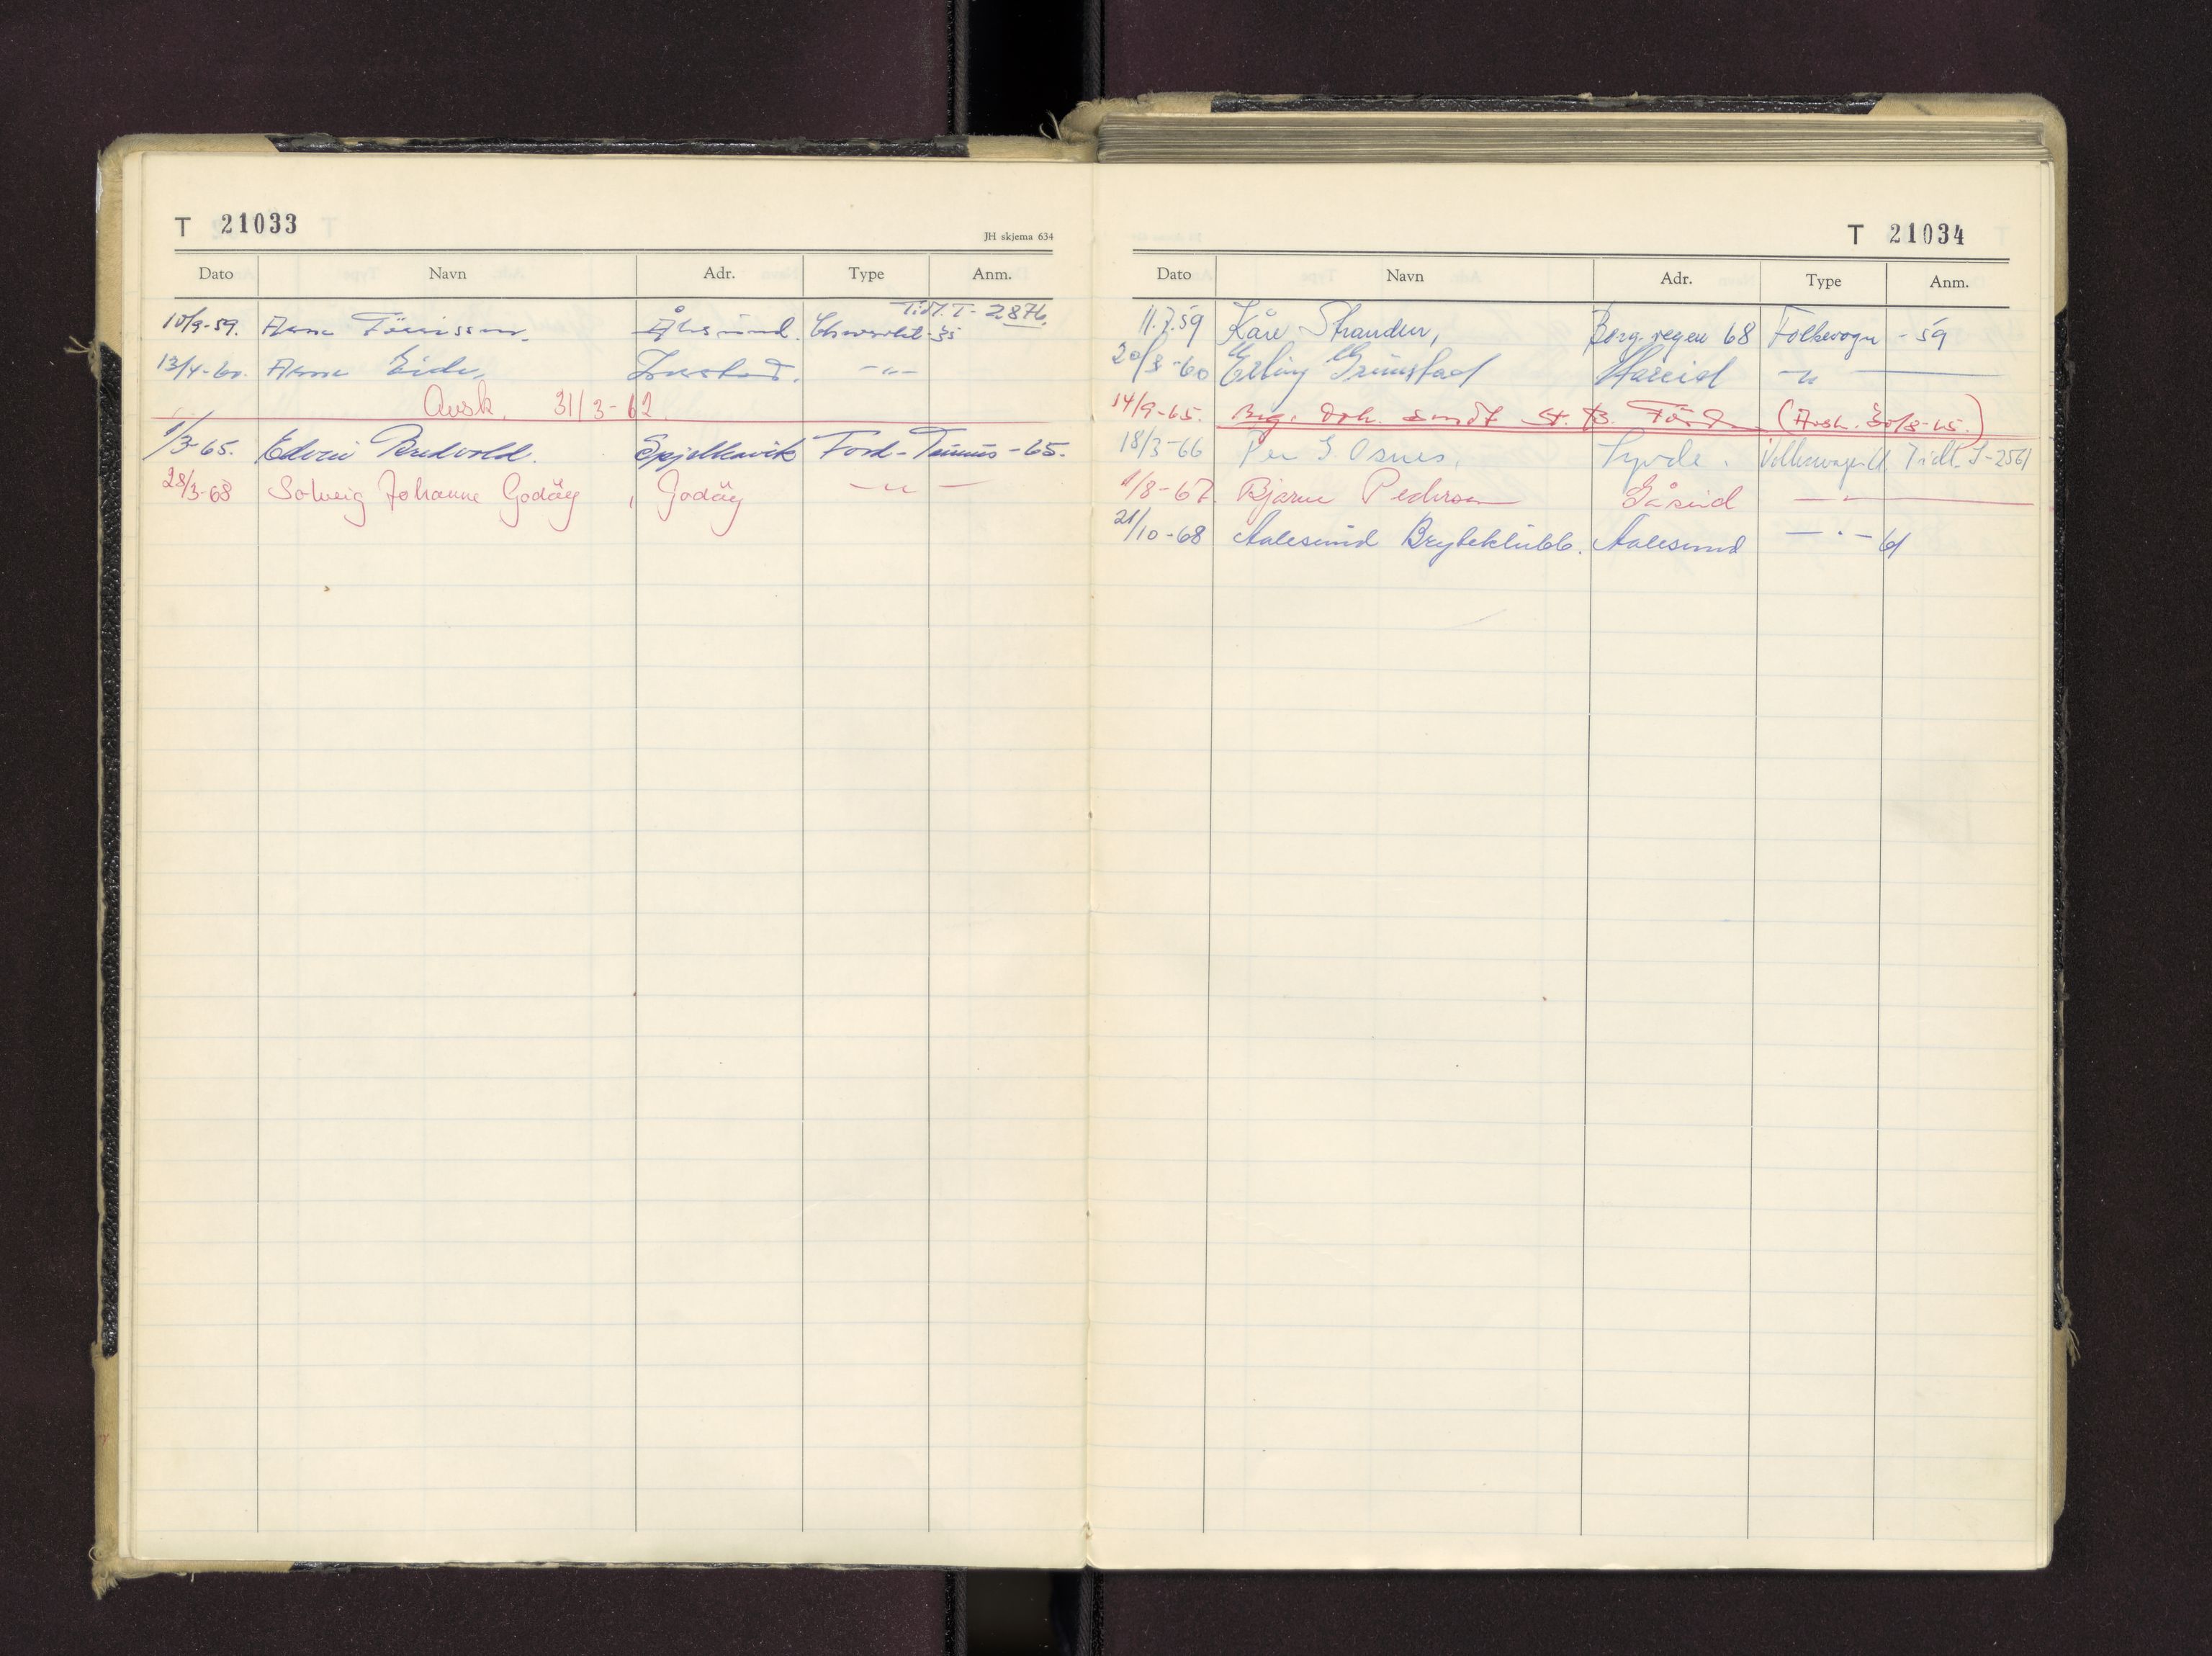 T 21033
JH skjema 634
Dato Navn Adr. Type Anm.
Tidl. T- 2876.
10/9-59. Arne Tönnissen. Ålesund. Chevrolet -35
13/4-60. Arne Eide, —"—
Avsk. 31/3-62
1/3-65. Edvin Bredvold. Spjelkavik Ford-Taunus -65.
28/3-68 Solveig Johanne Godöy, Godöy —"—
T 21034
Dato Navn Adr. Type Anm.
11.7.59 Kåre Strander, Borg.vegen 68 Folkevogn -59
20/8-60 Erling Grimstad Hareid —"—
14/9-65. Reg. dok. sendt St. B. Förde (Avsk. 30/8-65.)
18/3-66 Per S Osnes, Syvde. Volkswagen Tidl. S-2561
1/8-67. Bjarne Pedersen Gåseid —"—
21/10-68 Aalesund Bryteklubb. Aalesund —"— 61